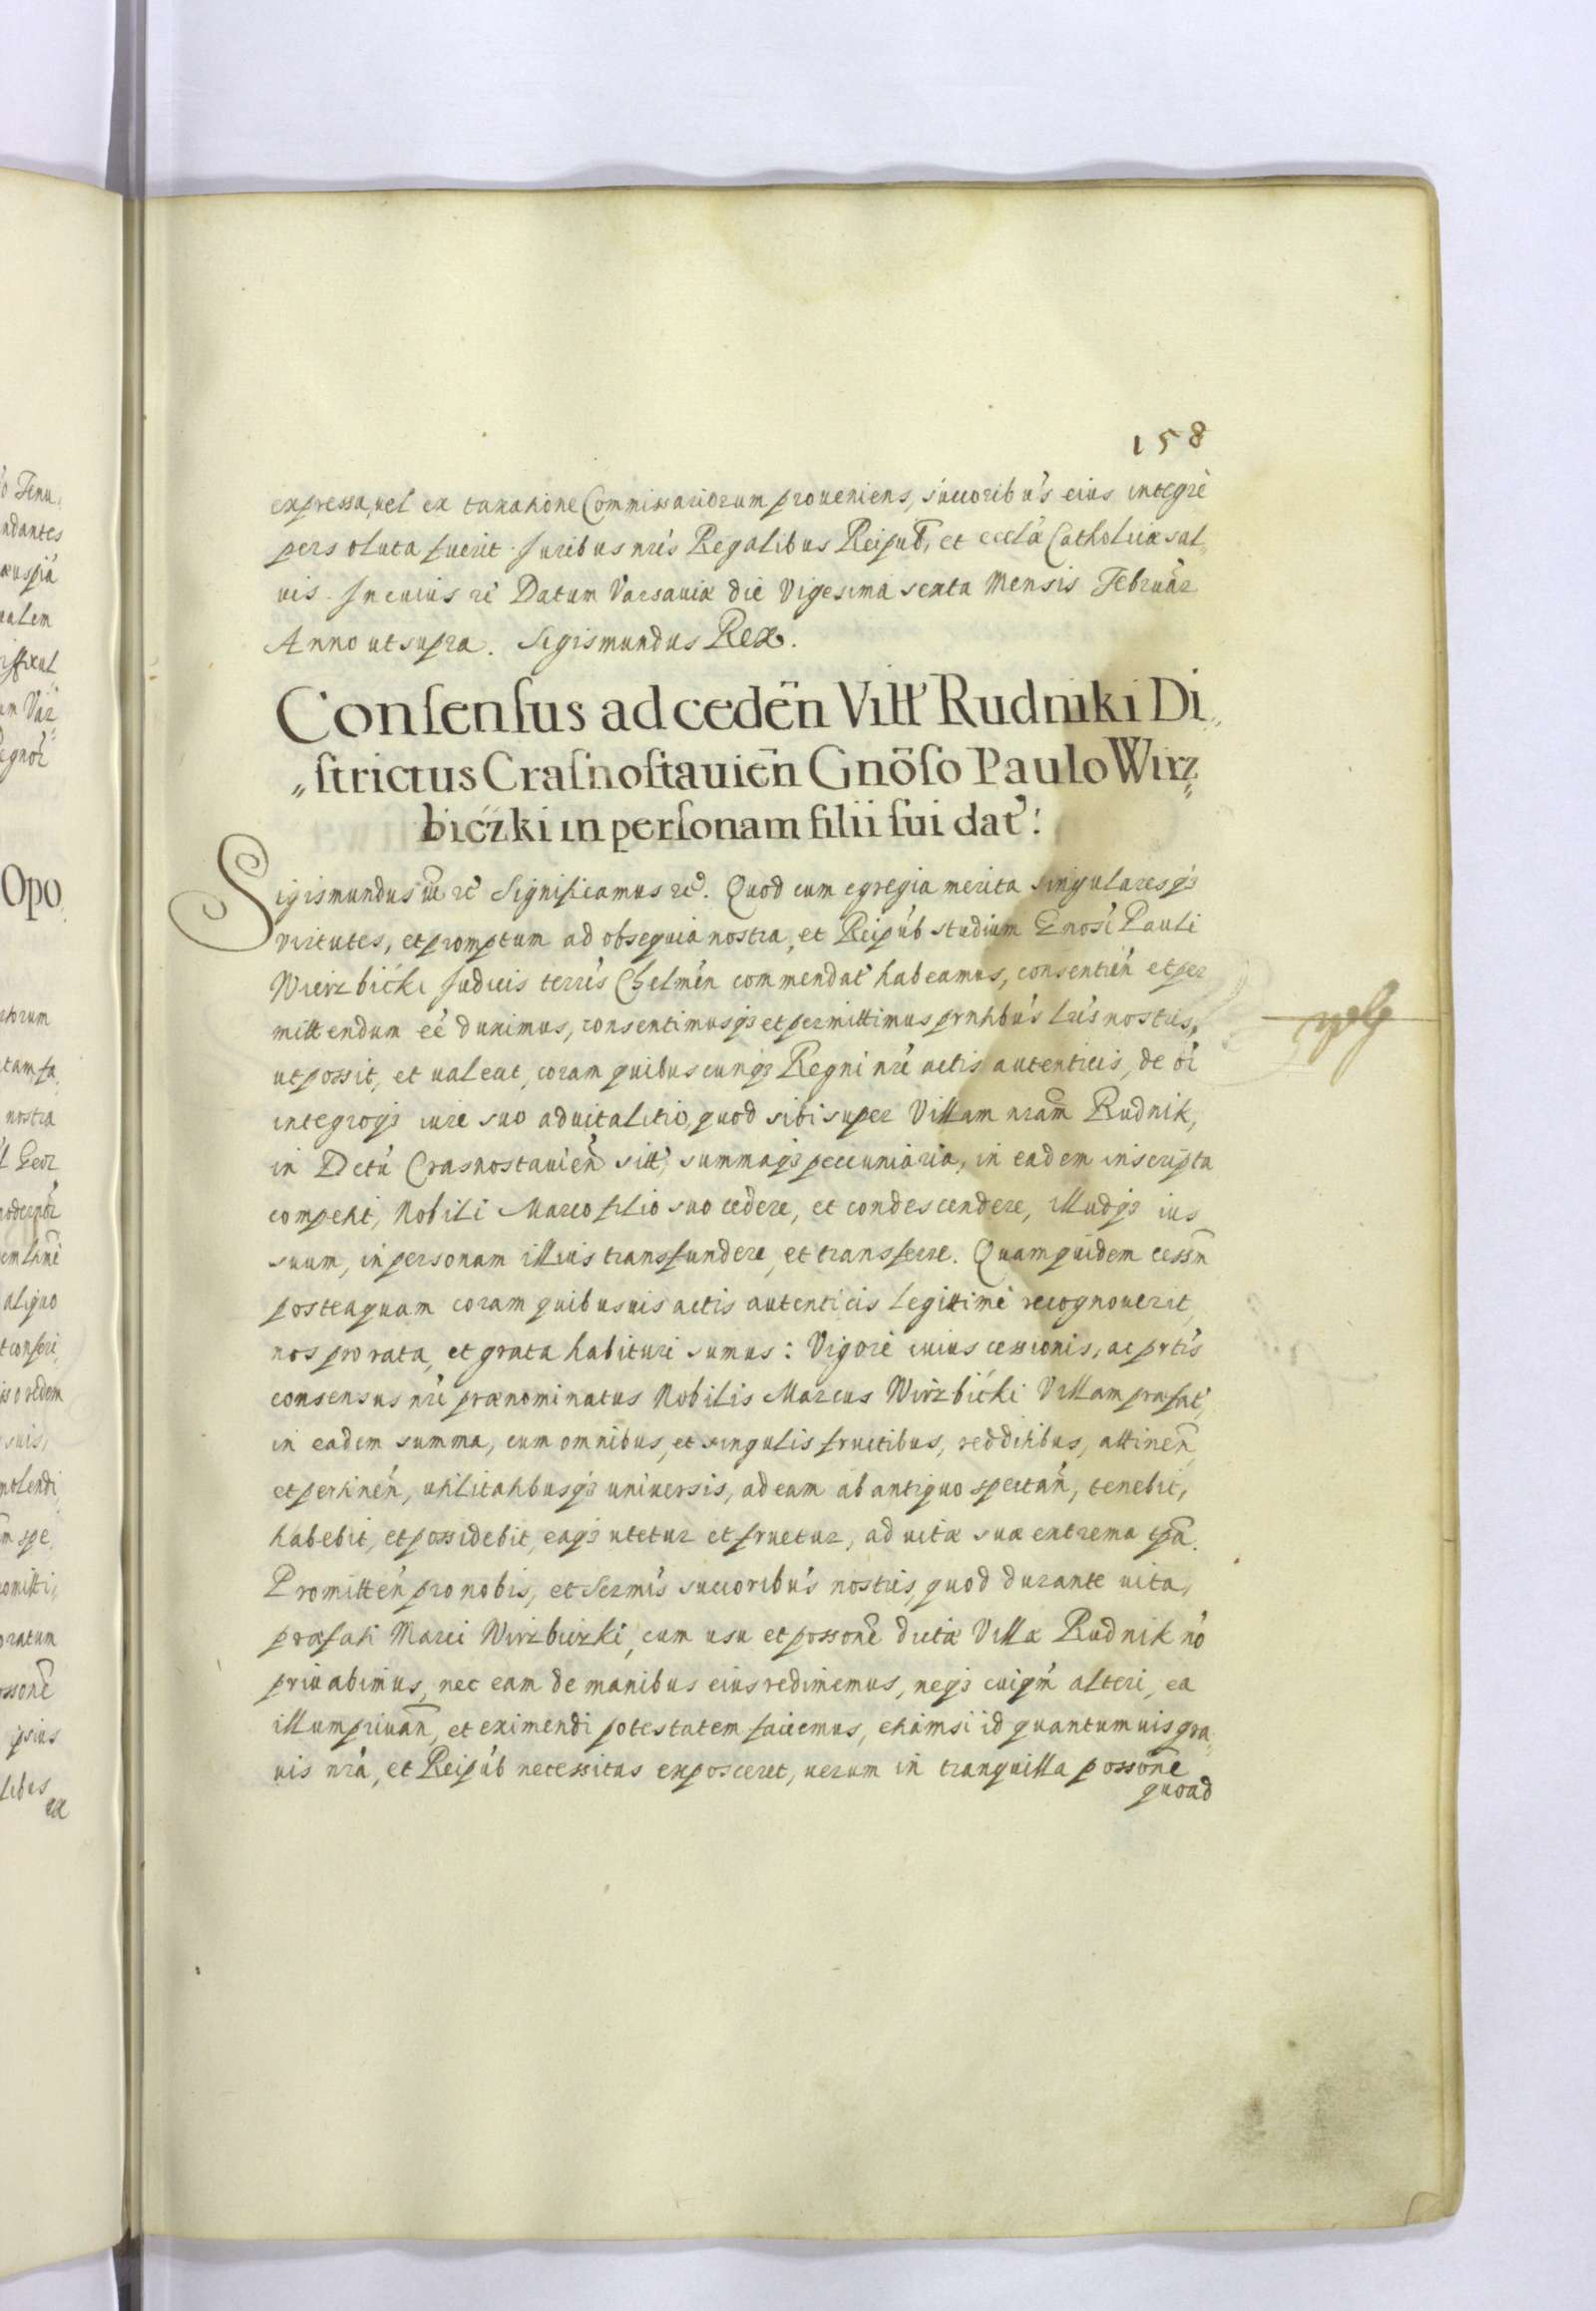 158
expressa, uel ex taxatione Commissariorum proueniens, succoribus eius integre
persoluta fuerit. Juribus nris Regalibus Reipub, et eccla Catholicæ sal„
uis. In cuius rei Datum Varsauiæ die Vigesima sexta Mensis Februar
Anno ut supra. Sigismundus Rex.
Conſenſus ad cedēn Vill' Rudniki Di„
„ſtrictus Craſnoſtauiēn Gnōſo Paulo Wirz„
biczki in perſonam filii ſui dat':
Sigismundus iii rc Significamus rc. Quod cum egregia merita singularesq3
virtutes, et promptum ad obsequia nostra, et Reipub studium Gnosi Pauli
Wierzbicki Judicis terris Chelmen commendat' habeamus, consentien et per
mittendum eē duximus, consentimusq3 et permittimus prntibus lris nostris,
ut possit, et ualeat, coram quibuscunq3 Regni nri actis autenticis, de oi
integroq3 iure suo aduitalitio, quod sibi super Villam nram Rudnik,
in Dctu Crasnostauien sitt, summaq3 pecuniaria, in eadem inscripta
competit, Nobili Marco filio suo cedere, et condescendere, illudq3 ius
suum, in personam illius transfundere, et transferre. Quamquidem cessn
posteaquam coram quibusuis actis autenticis legittime recognouerit,
nos pro rata, et grata habituri sumus: Vigore cuius cessionis, ac prtis
consensus nri prænominatus Nobilis Marcus Wirzbicki Villam præfat',
in eadem summa, cum omnibus, et singulis fructibus, redditibus, attinen
et pertinen, utilitatibusq3 uniuersis, ad eam ab antiquo spectan, tenebit,
habebit, et possidebit, eaq3 utetur et fruetur, ad uitæ suæ extrema tpa.
Promitten pro nobis, et Sermis succoribus nostris, quod durante uita,
præfati Marci Wirzbiczki, eum usu et possone dictæ Villæ Rudnik nō
priuabimus, nec eam de manibus eius redimemus, neq3 cuiqm alteri, ea
illum priuan, et eximendi potestatem faciemus, etiamsi id quantumuis gra„
uis nra, et Reipub necessitas exposceret, uerum in tranquilla possone
quoad